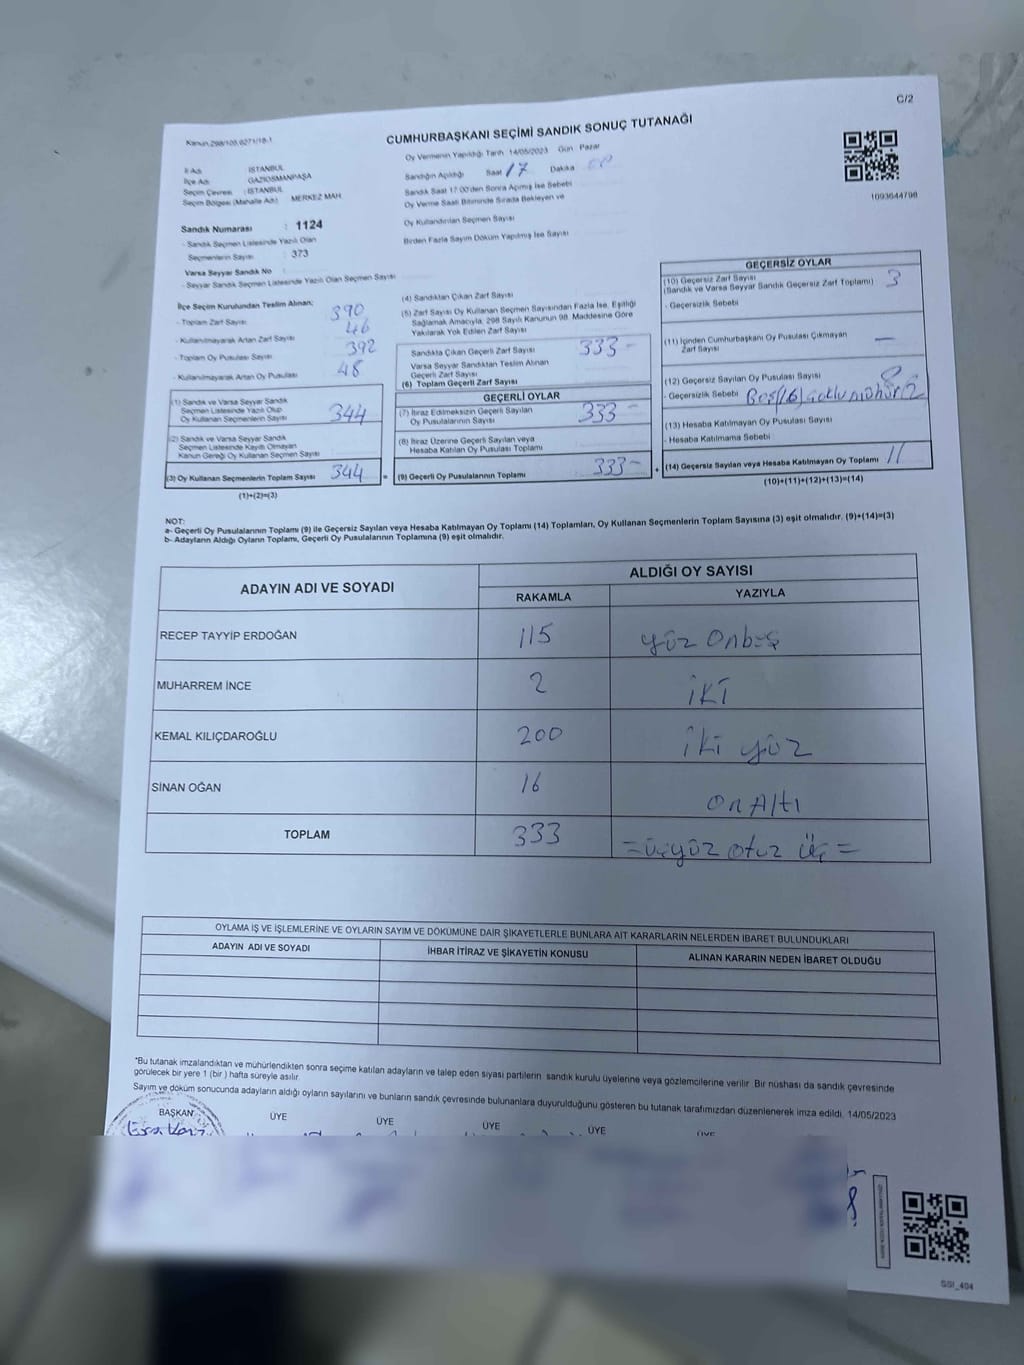 C/2
Kanun:298/105/6271/18-1
CUMHURBAŞKANI SEÇİMİ SANDIK SONUÇ TUTANAĞI
Oy Vermenin Yapıldığı Tarih 14/05/2023 Gün: Pazar
İl Adı : İSTANBUL
İlçe Adı: GAZİOSMANPAŞA
Seçim Çevresi : İSTANBUL
Seçim Bölgesi (Mahalle Adı): MERKEZ MAH
Sandığın Açıldığı Saat 17 Dakika
Sandık Saat 17:00'den Sonra Açılmış İse Sebebi
Oy Verme Saati Bitiminde Sırada Bekleyen ve
Oy Kullandırılan Seçmen Sayısı
Birden Fazla Sayım Döküm Yapılmış İse Sayısı
1093644798
Sandık Numarası : 1124
- Sandık Seçmen Listesinde Yazılı Olan
Seçmenlerin Sayısı : 373
Varsa Seyyar Sandık No
- Seyyar Sandık Seçmen Listesinde Yazılı Olan Seçmen Sayısı
İlçe Seçim Kurulundan Teslim Alınan:
- Toplam Zarf Sayısı 390
- Kullanılmayarak Artan Zarf Sayısı 46
- Toplam Oy Pusulası Sayısı 392
- Kullanılmayarak Artan Oy Pusulası 48
(1) Sandık ve Varsa Seyyar Sandık
Seçmen Listesinde Yazılı Olup
Oy Kullanan Seçmenlerin Sayısı 344
(2) Sandık ve Varsa Seyyar Sandık
Seçmen Listesinde Kayıtlı Olmayan
Kanun Gereği Oy Kullanan Seçmen Sayısı
(3) Oy Kullanan Seçmenlerin Toplam Sayısı 344 =
(1)+(2)=(3)
(4) Sandıktan Çıkan Zarf Sayısı
(5) Zarf Sayısı Oy Kullanan Seçmen Sayısından Fazla İse, Eşitliği
Sağlamak Amacıyla, 298 Sayılı Kanunun 98. Maddesine Göre
Yakılarak Yok Edilen Zarf Sayısı
Sandıkta Çıkan Geçerli Zarf Sayısı 333-
Varsa Seyyar Sandıktan Teslim Alınan
Geçerli Zarf Sayısı
(6) Toplam Geçerli Zarf Sayısı
GEÇERLİ OYLAR
(7) İtiraz Edilmeksizin Geçerli Sayılan
Oy Pusulalarının Sayısı 333-
(8) İtiraz Üzerine Geçerli Sayılan veya
Hesaba Katılan Oy Pusulası Toplamı
(9) Geçerli Oy Pusulalarının Toplamı 333- +
GEÇERSİZ OYLAR
(10) Geçersiz Zarf Sayısı
(Sandık ve Varsa Seyyar Sandık Geçersiz Zarf Toplamı) 3
- Geçersizlik Sebebi
(11) İçinden Cumhurbaşkanı Oy Pusulası Çıkmayan
Zarf Sayısı -
(12) Geçersiz Sayılan Oy Pusulası Sayısı 8
- Geçersizlik Sebebi Boş(6)
(13) Hesaba Katılmayan Oy Pusulası Sayısı
- Hesaba Katılmama Sebebi
(14) Geçersiz Sayılan veya Hesaba Katılmayan Oy Toplamı 11
(10)+(11)+(12)+(13)=(14)
NOT:
a- Geçerli Oy Pusulalarının Toplamı (9) ile Geçersiz Sayılan veya Hesaba Katılmayan Oy Toplamı (14) Toplamları, Oy Kullanan Seçmenlerin Toplam Sayısına (3) eşit olmalıdır. (9)+(14)=(3)
b- Adayların Aldığı Oyların Toplamı, Geçerli Oy Pusulalarının Toplamına (9) eşit olmalıdır.
ADAYIN ADI VE SOYADI ALDIĞI OY SAYISI
RAKAMLA YAZIYLA
RECEP TAYYİP ERDOĞAN 115 yüz onbeş
MUHARREM İNCE 2 iki
KEMAL KILIÇDAROĞLU 200 iki yüz
SİNAN OĞAN 16 on Altı
TOPLAM 333 =üçyüz otuz üç=
OYLAMA İŞ VE İŞLEMLERİNE VE OYLARIN SAYIM VE DÖKÜMÜNE DAİR ŞİKAYETLERLE BUNLARA AİT KARARLARIN NELERDEN İBARET BULUNDUKLARI
ADAYIN ADI VE SOYADI İHBAR İTİRAZ VE ŞİKAYETİN KONUSU ALINAN KARARIN NEDEN İBARET OLDUĞU
*Bu tutanak imzalandıktan ve mühürlendikten sonra seçime katılan adayların ve talep eden siyasi partilerin sandık kurulu üyelerine veya gözlemcilerine verilir. Bir nüshası da sandık çevresinde
görülecek bir yere 1 (bir ) hafta süreyle asılır.
Sayım ve döküm sonucunda adayların aldığı oyların sayılarını ve bunların sandık çevresinde bulunanlara duyurulduğunu gösteren bu tutanak tarafımızdan düzenlenerek imza edildi. 14/05/2023
BAŞKAN ÜYE ÜYE ÜYE ÜYE ÜYE
SSI_404